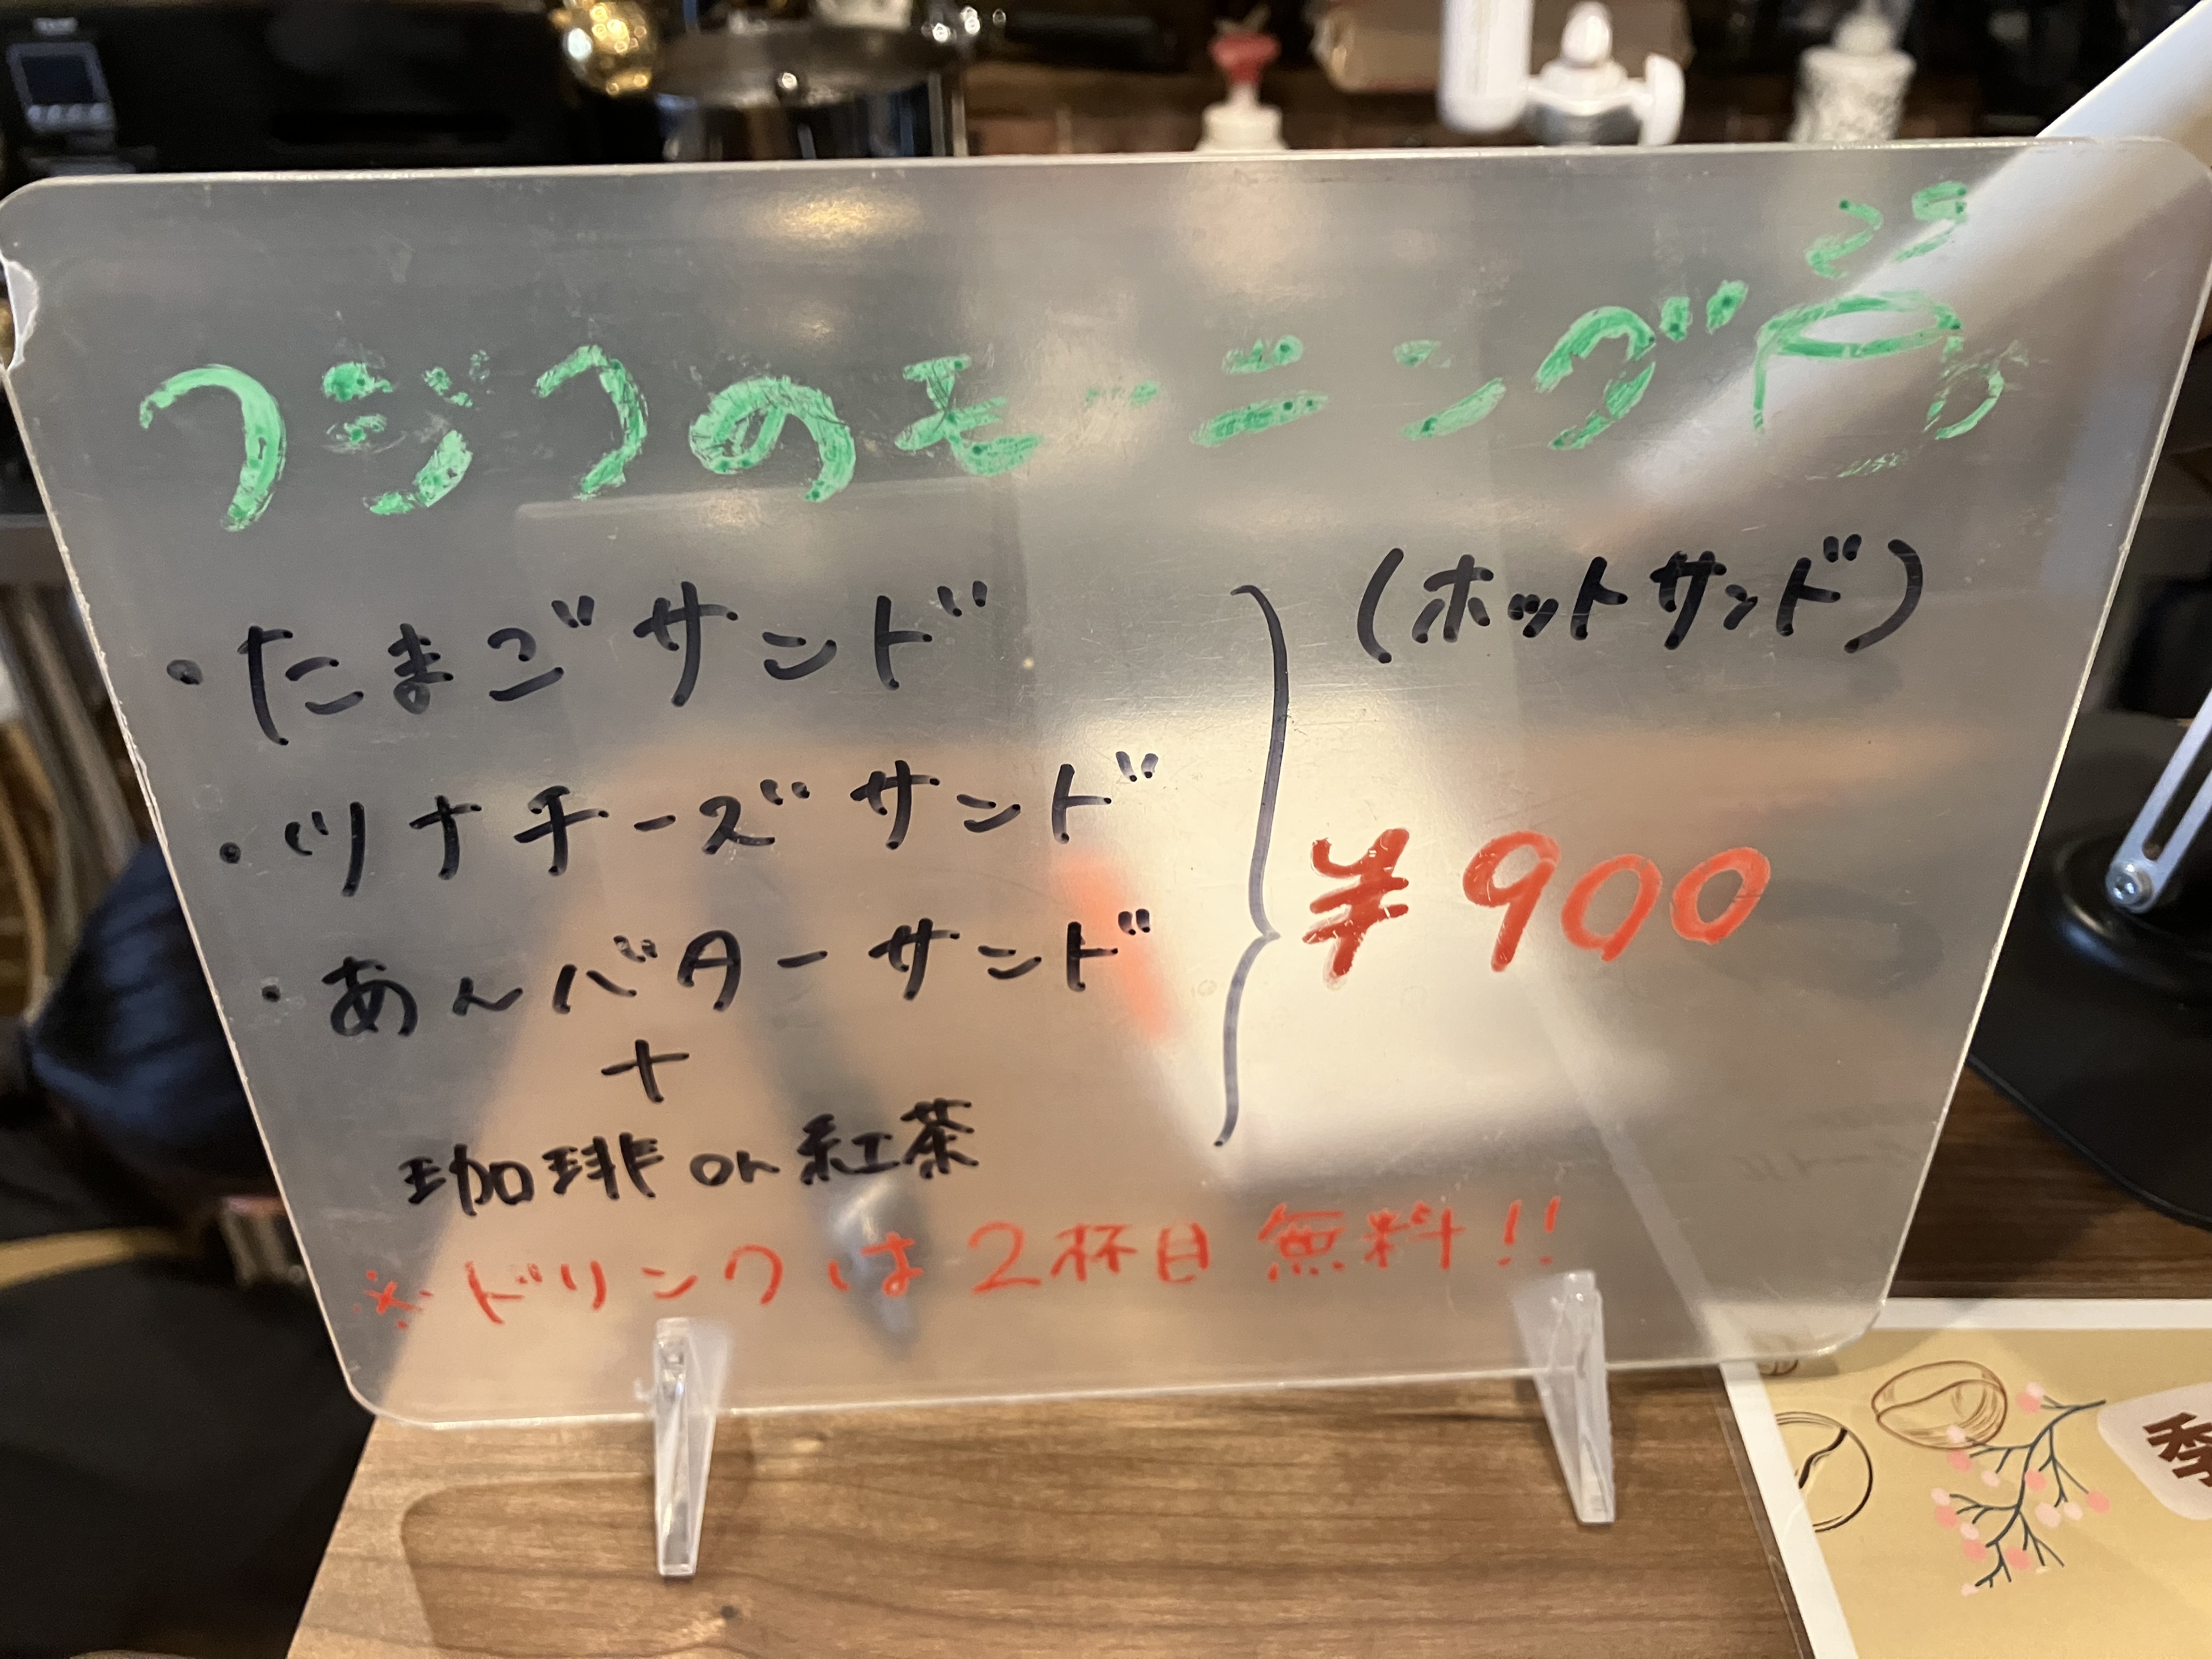 フジコのモーニング
・たまごサンド
(ホットサンド)
・ツナチーズサンド
・あんバターサンド
¥900
+
珈琲 or 紅茶
※ドリンクは2杯目無料!!